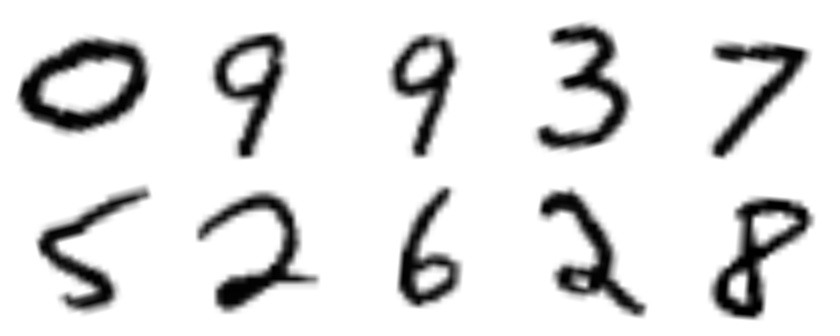 0 9 9 3 7
5 2 6 2 8